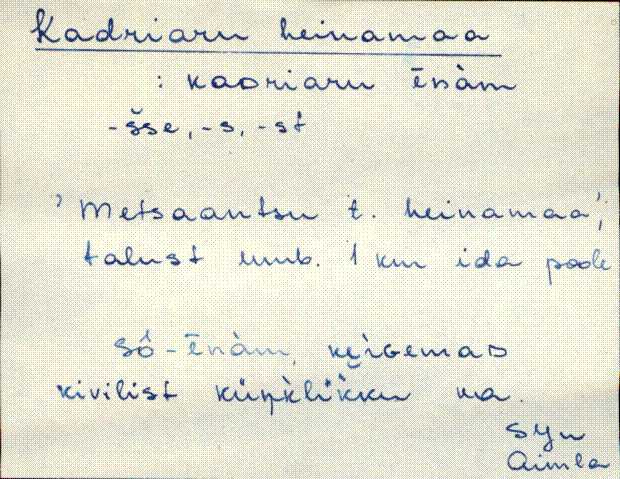 Kadriaru heinamaa
: kaᴅriaru ēnàm
-šse, -s, -st
'Metsaantsu t. heinamaa',
talust umb. 1 km ida poole
sô-ēnàm,
kivilist ma.
Syn
Aimla